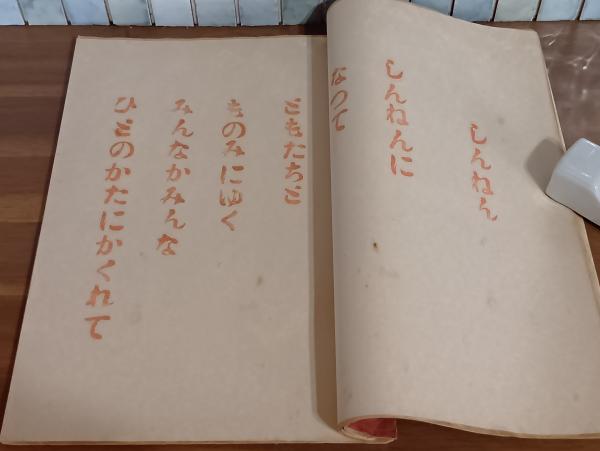 しんねん
しんねんに
なつて
ともたちと
ものみにゆく
みんなかみんな
ひとのかたにかくれて